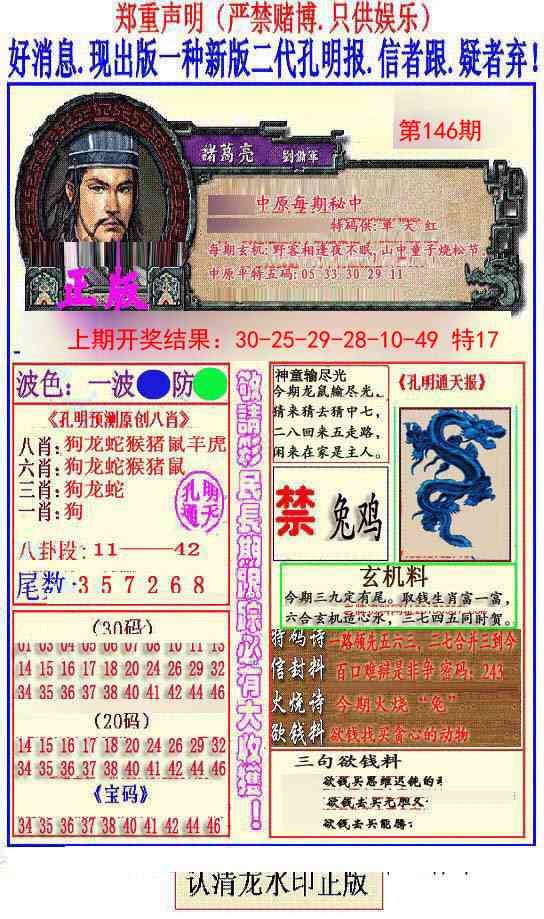 郑重声明（严禁赌博.只供娱乐）
好消息.现出版一种新版二代孔明报.信者跟.疑者弃!
諸葛亮 劉備軍
第146期
中原每期秘中
特码供:单 大 红
每期玄机:野客相逢夜不眠,山中童子烧松节
中原平特五码:05 33 30 29 11
正版
上期开奖结果：30-25-29-28-10-49 特17
波色：一波 防
《孔明预测原创八肖》
八肖:狗龙蛇猴猪鼠羊虎
六肖:狗龙蛇猴猪鼠
三肖:狗龙蛇
一肖:狗
孔明通天
八卦段:11——42
尾数:357268
(30码)
01 03 05 13
14 15 16 17 18 20 24 26 29 32
34 35 36 37 38 40 41 42 44 46
(20码)
14 15 16 17 18 20 24 26 29 32
34 35 36 37 38 40 41 42 44 46
《宝码》
34 35 36 37 38 40 41 42 44 46
敬請彩民長期跟踪必有大收獲！
神童输尽光
今期龙鼠输尽光。
猜来猜去猜中七，
二八回来五走路，
闲来在家是主人。
《孔明通天报》
禁 兔鸡
玄机料
今期三九定有尾。取钱生肖富一富，
六合玄机造心水，三七四五同时贺。
特码诗 一路领先五六三，二七合并三到今
信封料 百口难辩是非争 密码：243
火烧诗 今期火烧“兔”
欲钱料 欲钱找买贪心的动物
三句欲钱料
欲钱买思维迟钝的
欲钱去买无胆义
欲钱去买能腾
认清龙水印正版